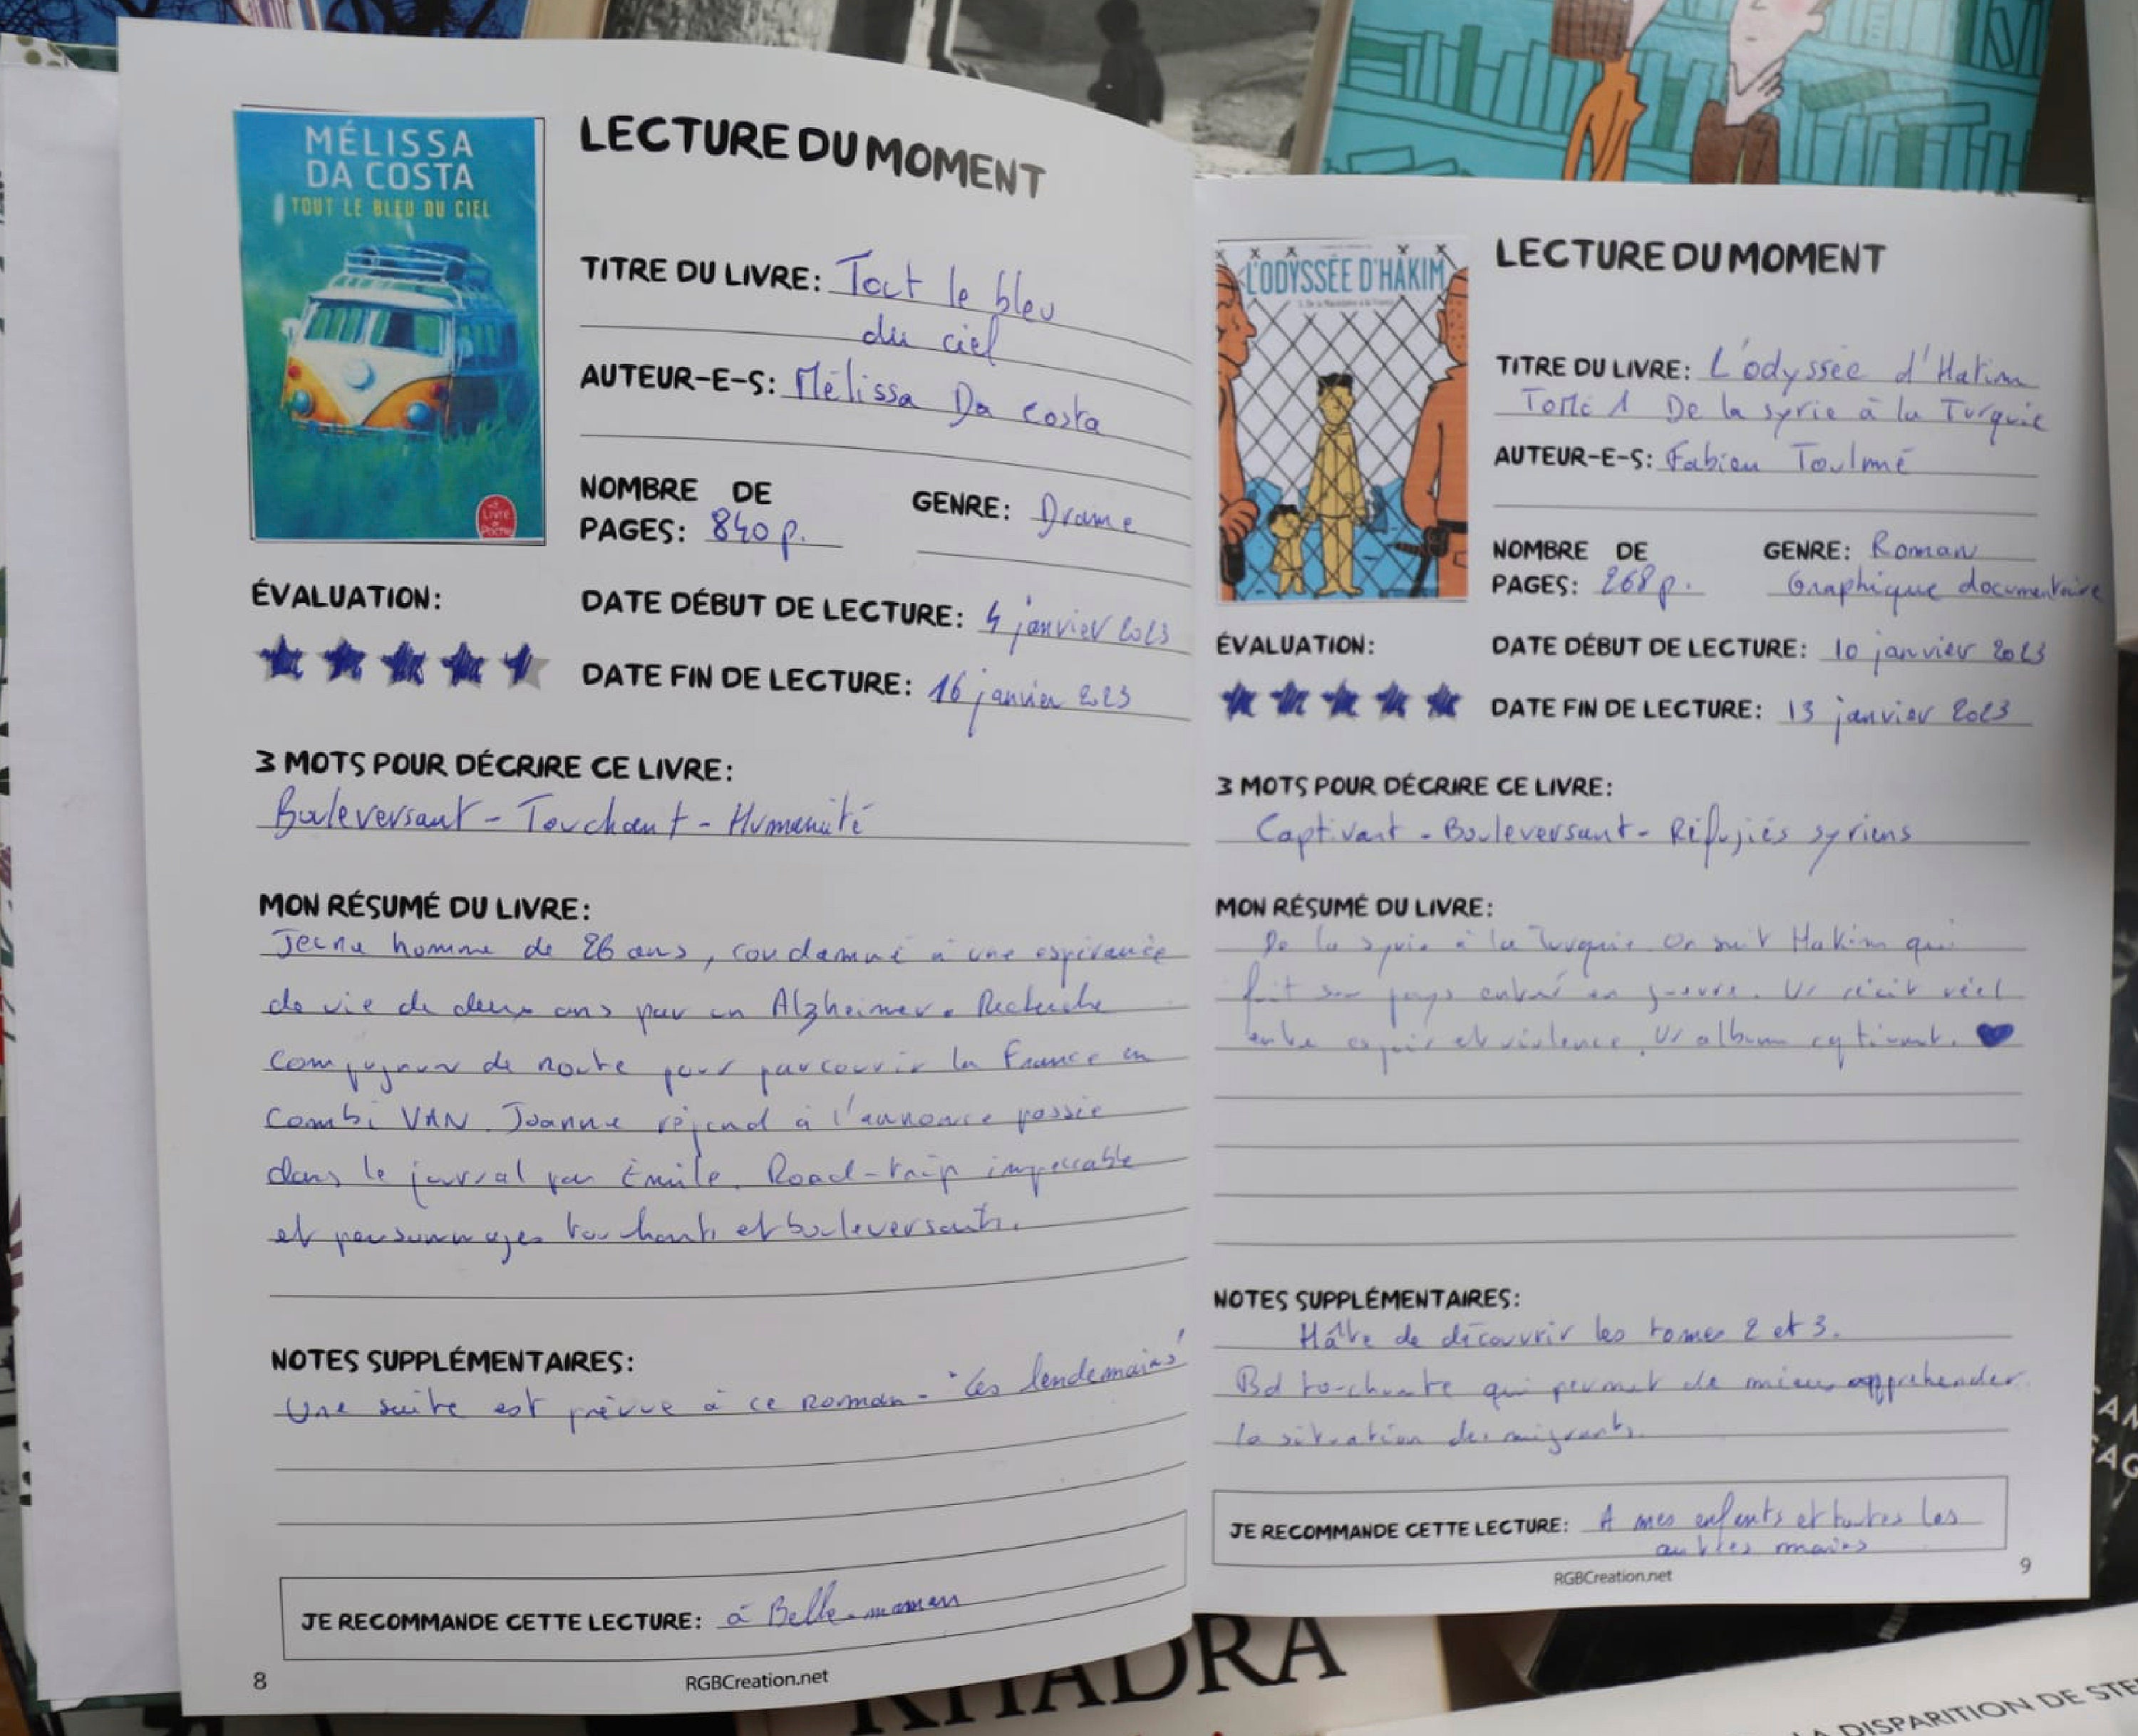 MÉLISSA
DA COSTA
TOUT LE BLEU DU CIEL
Le
Livre
de
Poche
LECTURE DU MOMENT
TITRE DU LIVRE: Tout le bleu
du ciel
AUTEUR-E-S: Mélissa Da Costa
NOMBRE DE
PAGES: 840 p.
GENRE: Drame
ÉVALUATION:
DATE DÉBUT DE LECTURE: 4 janvier 2023
DATE FIN DE LECTURE: 16 janvier 2023
3 MOTS POUR DÉCRIRE CE LIVRE:
Bouleversant - Touchant - Humanité
MON RÉSUMÉ DU LIVRE:
Jeune homme de 26 ans, condamné à une espérance
de vie de deux ans par un Alzheimer. Recherche
compagnon de route pour parcourir la France en
combi VAN. Joanne répond à l'annonce passée
dans le journal par Émile. Road-trip impeccable
et personnages touchants et bouleversants.
NOTES SUPPLÉMENTAIRES:
Une suite est prévue à ce roman - "Les lendemains"
JE RECOMMANDE CETTE LECTURE: à Belle-maman
8
RGBCreation.net
L'ODYSSÉE D'HAKIM
LECTURE DU MOMENT
TITRE DU LIVRE: L'odyssée d'Hakim
Tome 1 De la syrie à la Turquie
AUTEUR-E-S: Fabien Toulmé
NOMBRE DE
PAGES: 268 p.
GENRE: Roman
Graphique documentaire
ÉVALUATION:
DATE DÉBUT DE LECTURE: 10 janvier 2023
DATE FIN DE LECTURE: 13 janvier 2023
3 MOTS POUR DÉCRIRE CE LIVRE:
Captivant - Bouleversant - Réfugiés syriens
MON RÉSUMÉ DU LIVRE:
De la syrie à la Turquie. On suit Hakim qui
fuit son pays entré en guerre. Un récit réel
entre espoir et violence. Un album captivant.
NOTES SUPPLÉMENTAIRES:
Hâte de découvrir les tomes 2 et 3.
Bd touchante qui permet de mieux appréhender
la situation des migrants.
JE RECOMMANDE CETTE LECTURE: A mes enfants et toutes les
autres mains
RGBCreation.net
9
KHADRA
LA DISPARITION DE STE